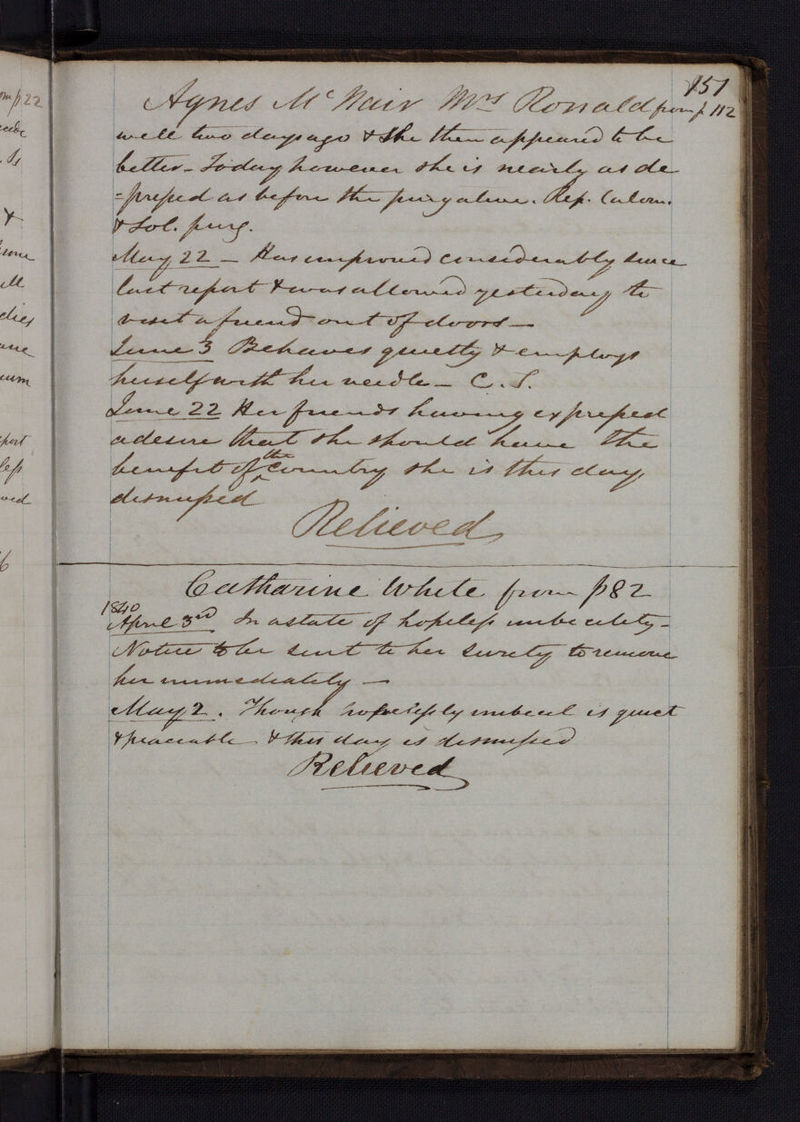 151
Agnes McNair Mrs Ronald from p 112
well two days ago & She then appeared to be
better - Today however she is nearly as de
=pressed as before the purgative. Rep. Calom.
& Sol. purg.
May 22 - Has improved considerably since
last report & was allowed yesterday to
visit a friend out of doors -
June 3 Behaves quietly & employs
herself with her needle - C. S.
June 22 Her friends having expressed
a desire that she should have the
benefit of the Country she is this day
dismissed
Relieved
Catharine White from p 82
1840
April 3rd In a state of hopeless imbecility -
Notice to be sent to her Surety to remove
her immediately -
May 2. Though hopelessly imbecil is quiet
& peaceable & this day is dismissed
Relieved
m p 22
&
ell